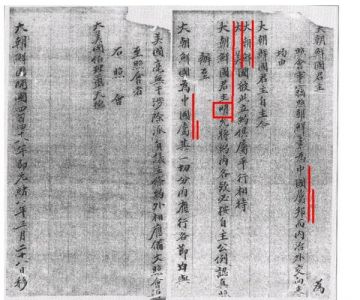 大朝鮮國君主 爲
照會事竊照朝鮮素爲中國屬邦而內治外交向來
均由
大朝鮮國君主自主今
大朝鮮國
大美國彼此立約俱屬平行相待
大朝鮮國君主明允將約內各款必按自主公例認眞照
辦至
大朝鮮國爲中國屬其一切分內應行各節均與
美國毫無干涉除派員議立條約外相應備文照會須
至照會者
右照會
大美國伯理璽天德
大朝鮮國開國四百九十一年即光緒八年三月二十八日移